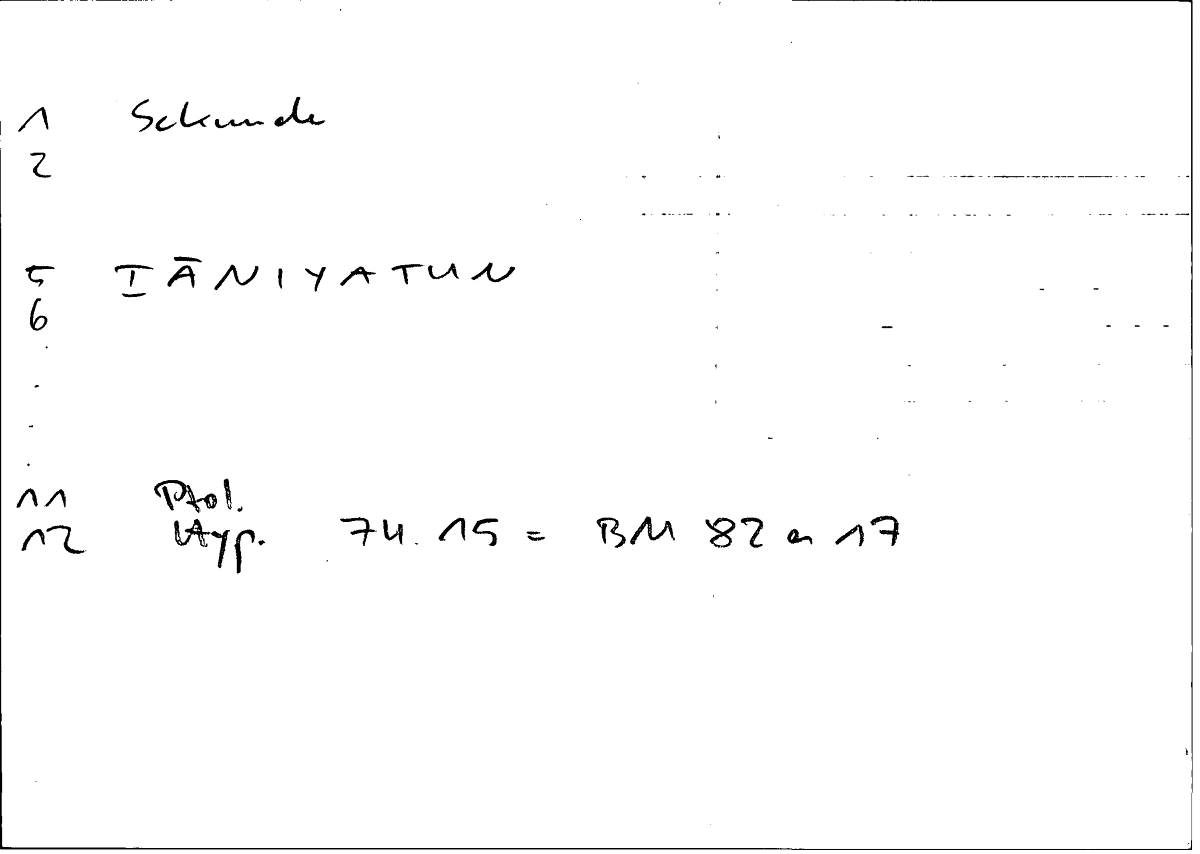 1 Sekunde
2
5 T̲ĀNIYATUN
6
11 Ptol.
12 Hyp. 74.15 = BM 82 a 17